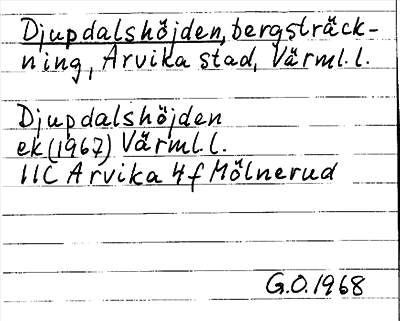 Djupdalshöjden, bergsträck-
ning, Arvika stad, Värml. l.
Djupdalshöjden
ek (1967) Värml. l.
11C Arvika 4f Mölnerud
G.O. 1968